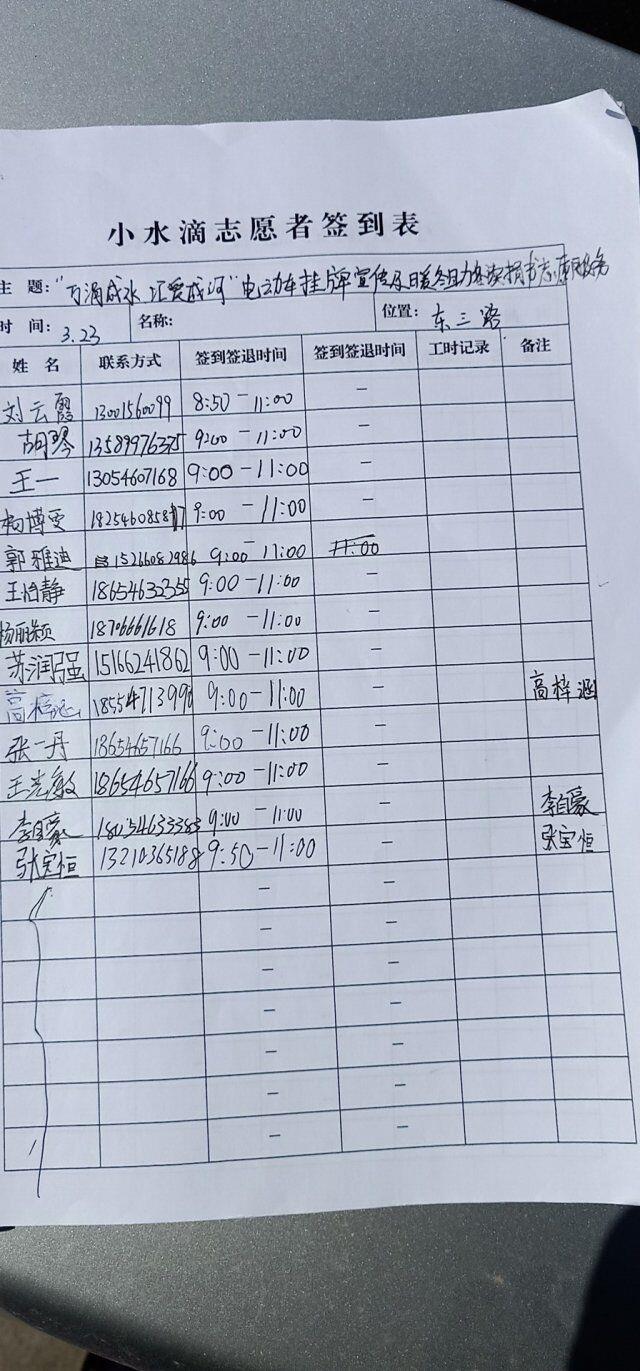 小水滴志愿者签到表
主 题：“万涓成水 汇爱成河”电动车挂牌宣传及暖冬助力冬衣捐书志愿服务
时 间： 3.23 名称： 位置： 东三路
姓 名 联系方式 签到签退时间 签到签退时间 工时记录 备注
刘云霞 13001560099 8:50 - 11:00 -
胡琴 13589976375 9:00 - 11:00 -
王一 13054607168 9:00 - 11:00 -
杨博雯 9:00 - 11:00 -
郭雅迪 15266082986 9:00 - 11:00 11:00
王怡静 18654632355 9:00 - 11:00 -
杨丽颖 18706661618 9:00 - 11:00 -
苏润强 15166241862 9:00 - 11:00 -
高梓涵 18554713990 9:00 - 11:00 - 高梓涵
张一丹 18654657166 9:00 - 11:00 -
王光敏 18654657166 9:00 - 11:00 -
李自豪 18054633383 9:00 - 11:00 - 李自豪
张宝恒 13210365188 9:50 - 11:00 - 张宝恒
- -
- -
- -
- -
- -
- -
- -